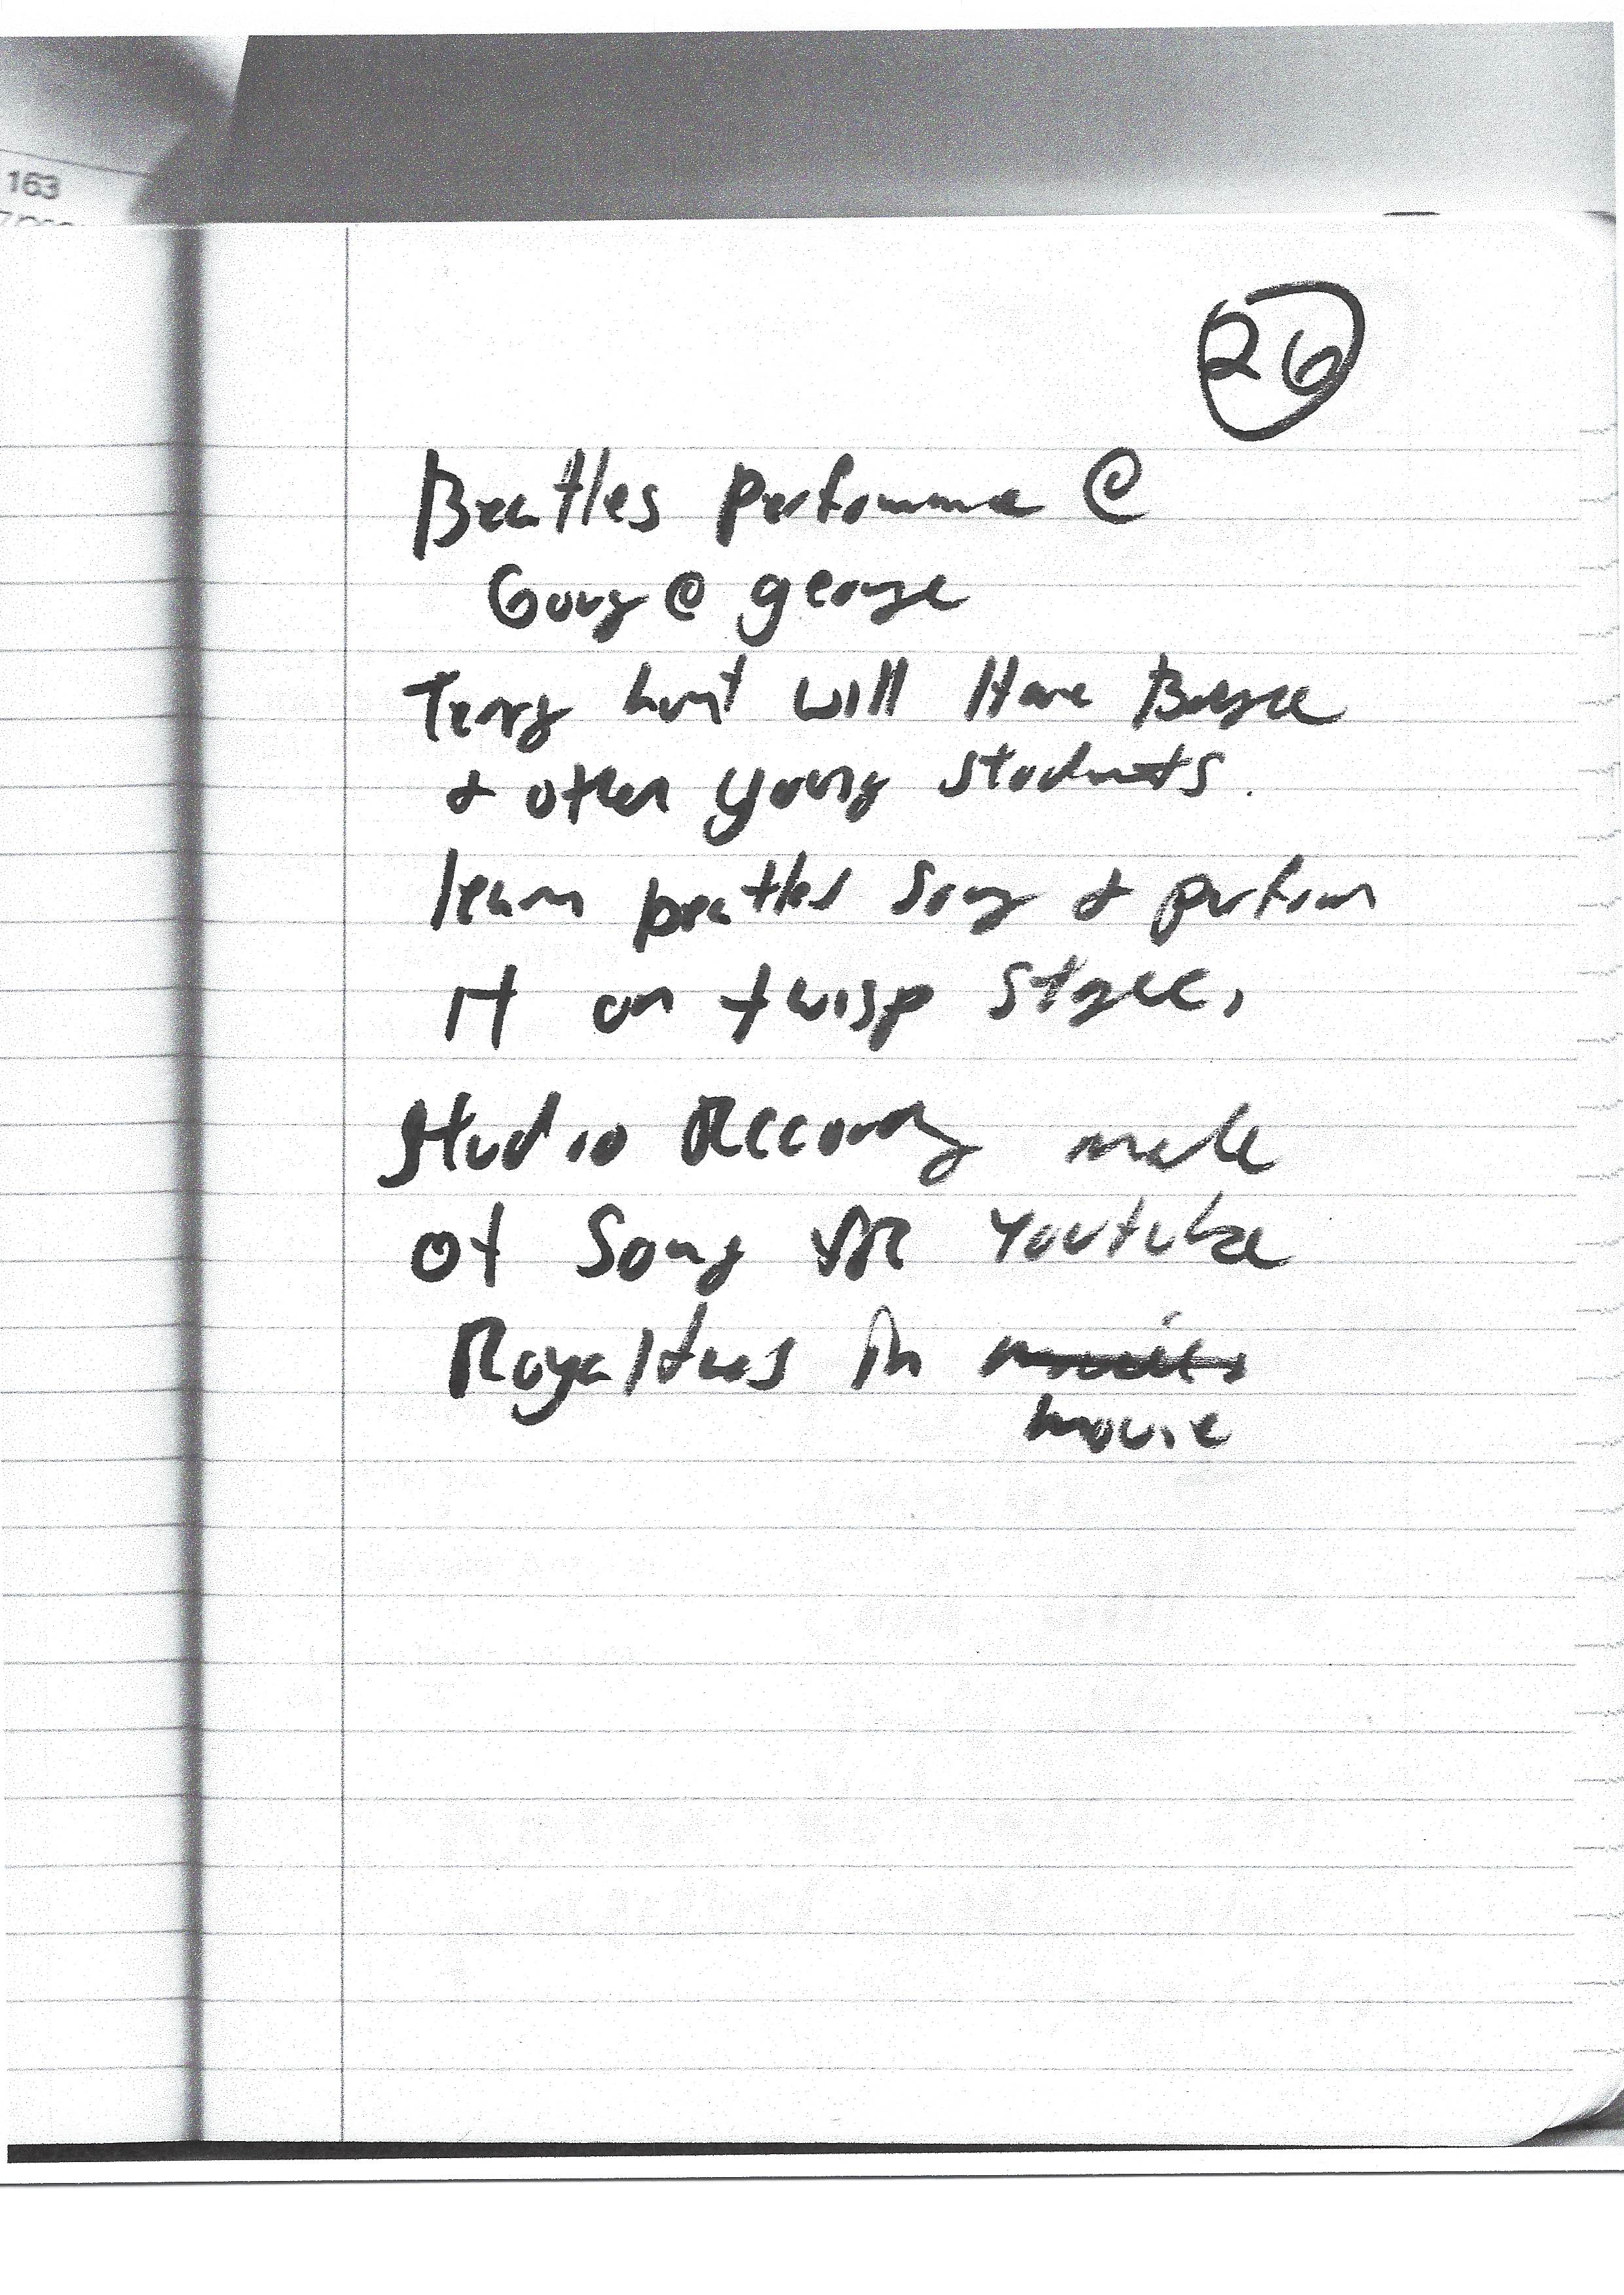 163
26
Beatles performance @
@ george
Terry hunt will Have
& other young students.
learn beatles song & perform
it on twisp stage,
Studio Recording made
of Song YouTube
Royalties in
movie